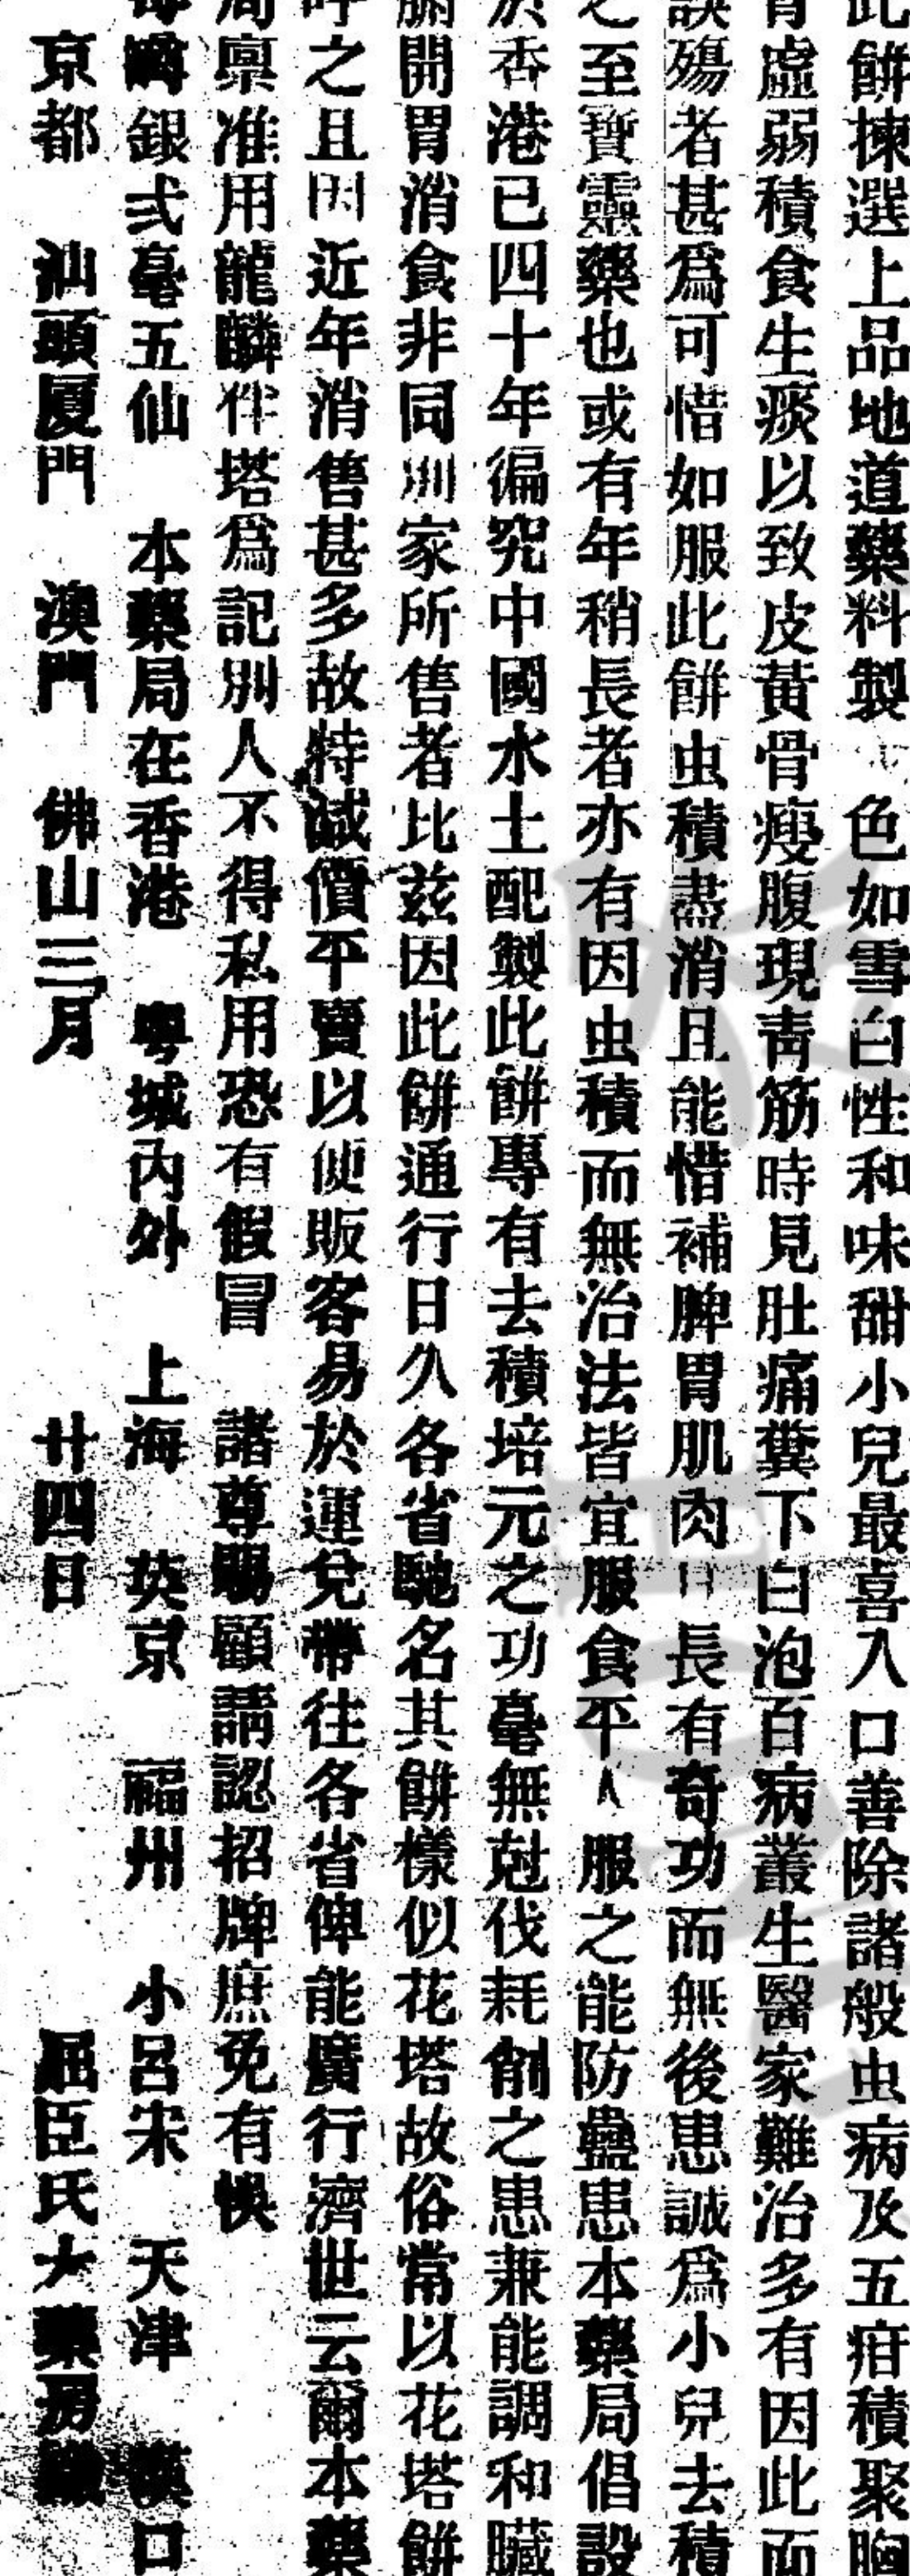 此餅揀選上品地道藥料製 色如雪白性和味甜小兒最喜入口善除諸般虫病及五疳積聚胸
胃虛弱積食生痰以致皮黃骨瘦腹現青筋時見肚痛糞下白泡百病叢生醫家難治多有因此而
誤殤者甚爲可惜如服此餅虫積盡消且能惜補脾胃肌肉日長有奇功而無後患誠爲小兒去積
之至寶靈藥也或有年稍長者亦有因虫積而無治法皆宜服食平人服之能防蠱患本藥局倡設
於香港已四十年徧究中國水土配製此餅專有去積培元之功毫無尅伐耗削之患兼能調和臟
腑開胃消食非同別家所售者比茲因此餅通行日久各省馳名其餅樣似花塔故俗常以花塔餅
呼之且因近年消售甚多故特減價平賣以便販客易於運兌帶往各省俾能廣行濟世云爾本藥
局稟准用龍麟伴塔爲記別人不得私用恐有假冒 諸尊賜顧請認招牌庶免有悞
每 銀弍毫五仙 本藥局在香港 粵城內外 上海 英京 福州 小呂宋 天津 漢口
京都 汕頭厦門 澳門 佛山 三月 廿四日 屈臣氏大藥房